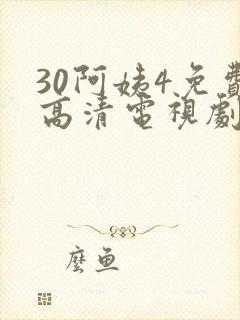 30阿姨4免費
高清電視劇
麼魚